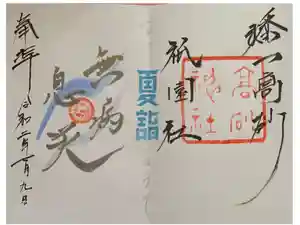 播一高砂
高砂
神社
祇園社
夏詣
無病
息災
奉拝
令和二年
月九日